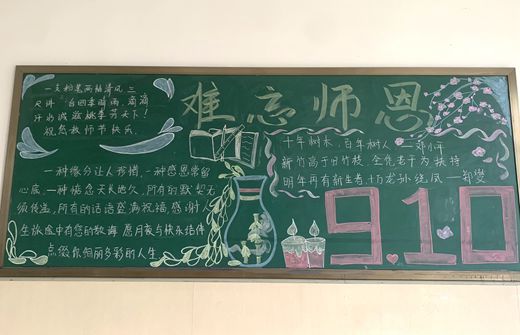 难忘师恩
一支粉笔两袖清风三
尺讲台四季晴雨,滴滴
汗水诚滋桃李芳天下!
祝您教师节快乐.
十年树木,百年树人——邓小平
新竹高于旧竹枝,全凭老干为扶持
明年再有新生者,十丈龙孙绕凤——郑燮
一种缘分让人珍惜,一种感恩常留
心底,一种惦念天长地久,所有的默契无
须传递,所有的话语盛满祝福,感谢人
生旅途中有您的教诲 愿月夜与快乐结伴
点缀你绚丽多彩的人生
9.10